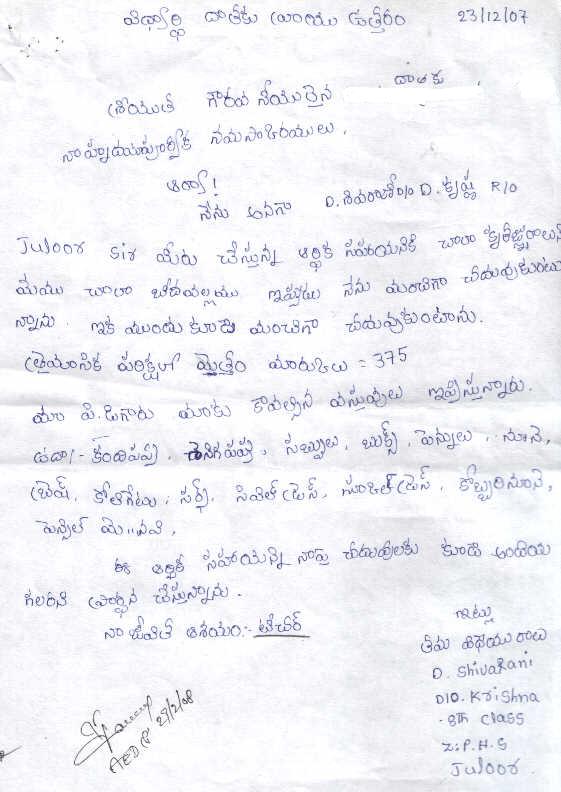 విద్యార్థి దాతకు వ్రాయు ఉత్తరం 23/12/07
దాతకు
శ్రీయుత గౌరవనీయులైన
నా హృదయపూర్వక నమస్కారములు.
ఆర్యా!
నేను అనగా D. శివరాణి D/o D. కృష్ణ R/o
Juloor Sir మీరు చేస్తున్న ఆర్థిక సహయనికి చాలా కృతజ్ఞురాలుని
మేము చాలా బీదవల్లము ఇప్పుడు నేను మంచిగా చదువుకుంటు
న్నాను. ఇక ముందు కూడా మంచిగా చదువుకుంటాను.
త్రైమాసిక పరిక్షలో మొత్తం మారుకులు = 375
మా పి.డిగారు మాకు కావల్సిన వస్తువులు ఇప్పిస్తున్నారు.
ఉదా/- కందిపప్పు, శెనిగపప్పు, సబ్బులు, బుక్స్, పెన్నులు, నూనె,
బ్రెష్, కోల్‌గేటు, సర్ఫ్, సివిల్ డ్రెస్, స్కూల్ డ్రెస్, కొబ్బరినూనె,
పెన్సిల్ మొ..నవి,
ఈ ఆర్థిక సహాయన్ని నాపై చదువులకు కూడా అందియ
గలరని ప్రార్థన చేస్తున్నాను.
నా జీవిత ఆశయం:- టీచర్
ఇట్లు
తమ విధేయురాలు
D. ShivaRani
D/O. Krishna
8th Class
Z.P.H.S
Juloor.
27/2/08